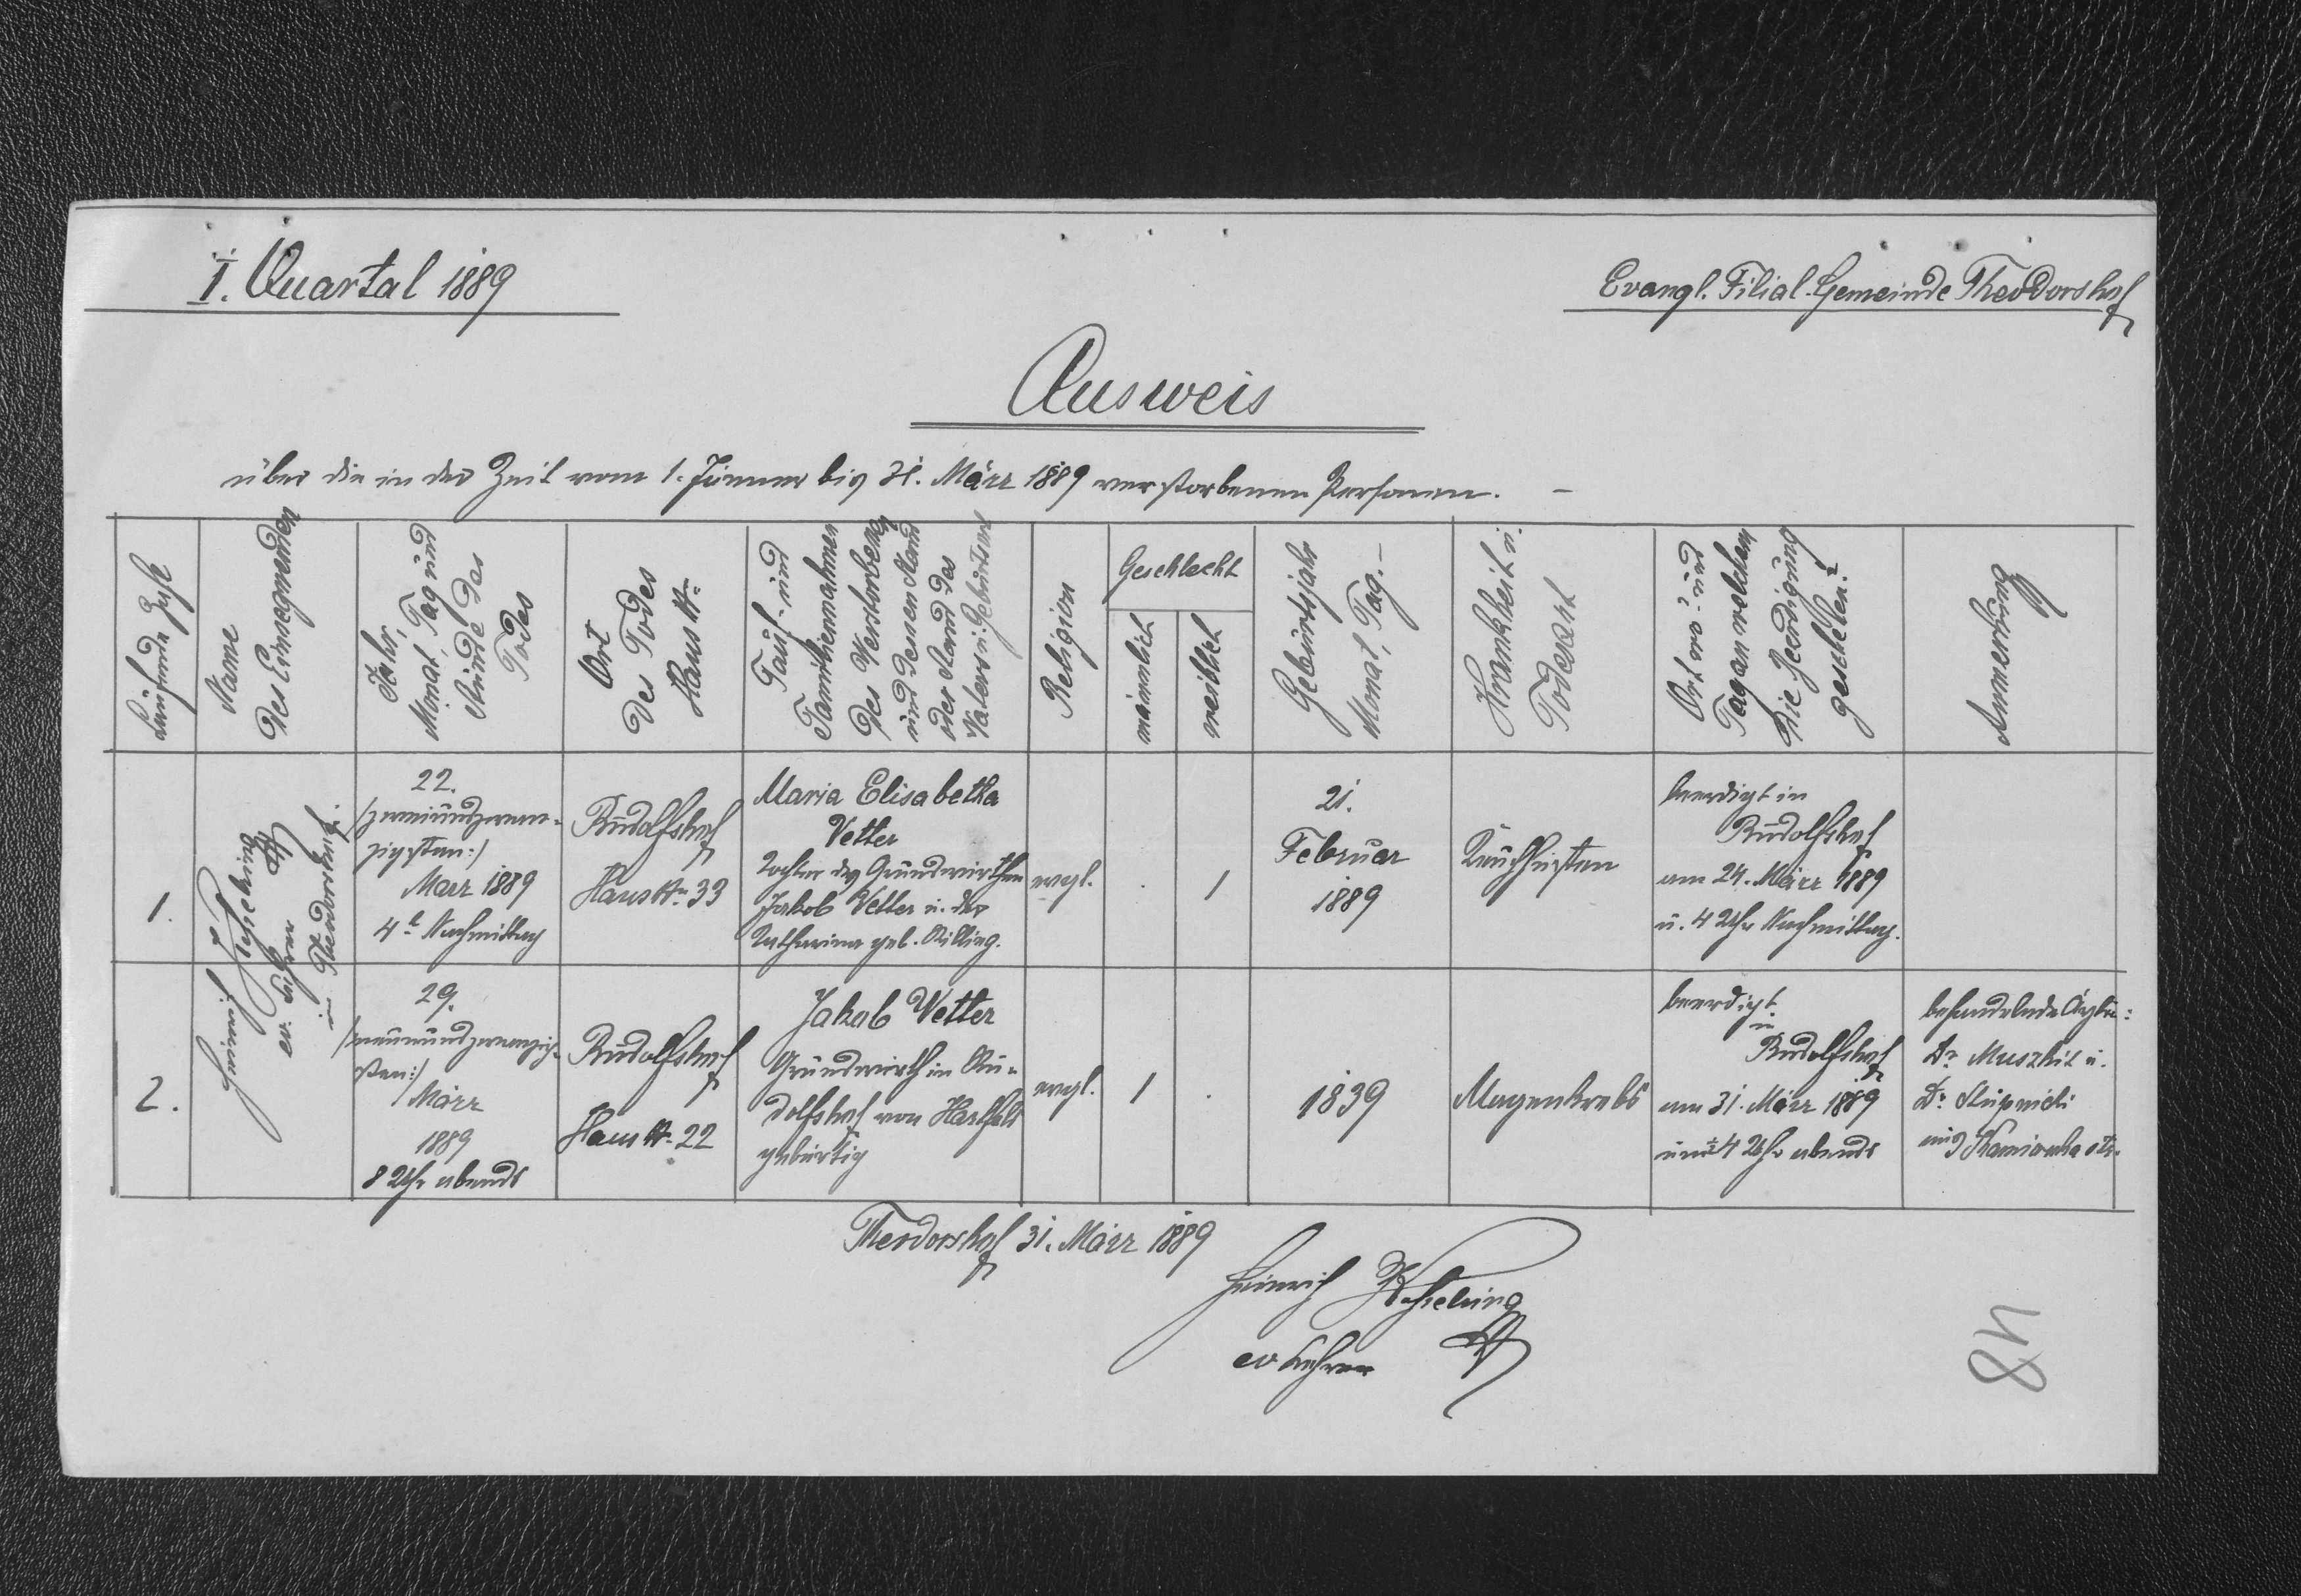 I. Quartal 1889
Evangl. Filial-Gemeinde Theodorshof
Ausweis
über die in der Zeit vom 1. Jänner bis 31. März 1889 verstorbenen Personen. –
Laufende Zahl
Name
des Einsegnenden
Jahr,
Monat, Tag und
Stunde des
Todes
Ort
des Todes
Haus Nr.
Tauf- und
Familiennahmen
des Verstorbenen
und dessen Stand
oder Stand des
Vaters u. Geburtsort
Religion
Geschlecht
männlich
weiblich
Geburtsjahr
Monat, Tag. –
Krankheit u.
Todesart
Ort wo? und
Tag an welchem
die Beerdigung
geschehen?
Anmerkung
1.
Heinrich
ev. Lehrer
in Theodorshof.
22.
/:zweiundzwan-
zigsten:/
März 1889
4h Nachmittag
Rudolfshof
Haus Nr. 33
Maria Elisabetha
Vetter
Tochter des Grundwirthen
Jakob Vetter u. der
Katharina geb. Rilling.
evgl.
.
1
21.
Februar
1889
Keuchhusten
beerdigt in
Rudolfshof
am 24. März 1889
u. 4 Uhr Nachmittag.
2.
29.
/:neunundzwanzig-
sten:/
März
1889
8 Uhr abends
Rudolfshof
Haus Nr. 22
Jakob Vetter
Grundwirth in Ru-
dolfshof von Hartfeld
gebürtig
evgl.
1
.
1839
Magenkrebs
beerdigt
in
Rudolfshof
am 31. März 1889
um 4 Uhr abends
behandelnde Ärzte:
Dr. u.
Dr. Stupnicki
aus Kamionka str.
Theodorshof 31. März 1889
Heinrich
ev Lehrer
48